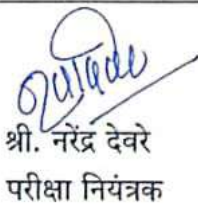 श्री. नरेंद्र देवरे
परीक्षा नियंत्रक